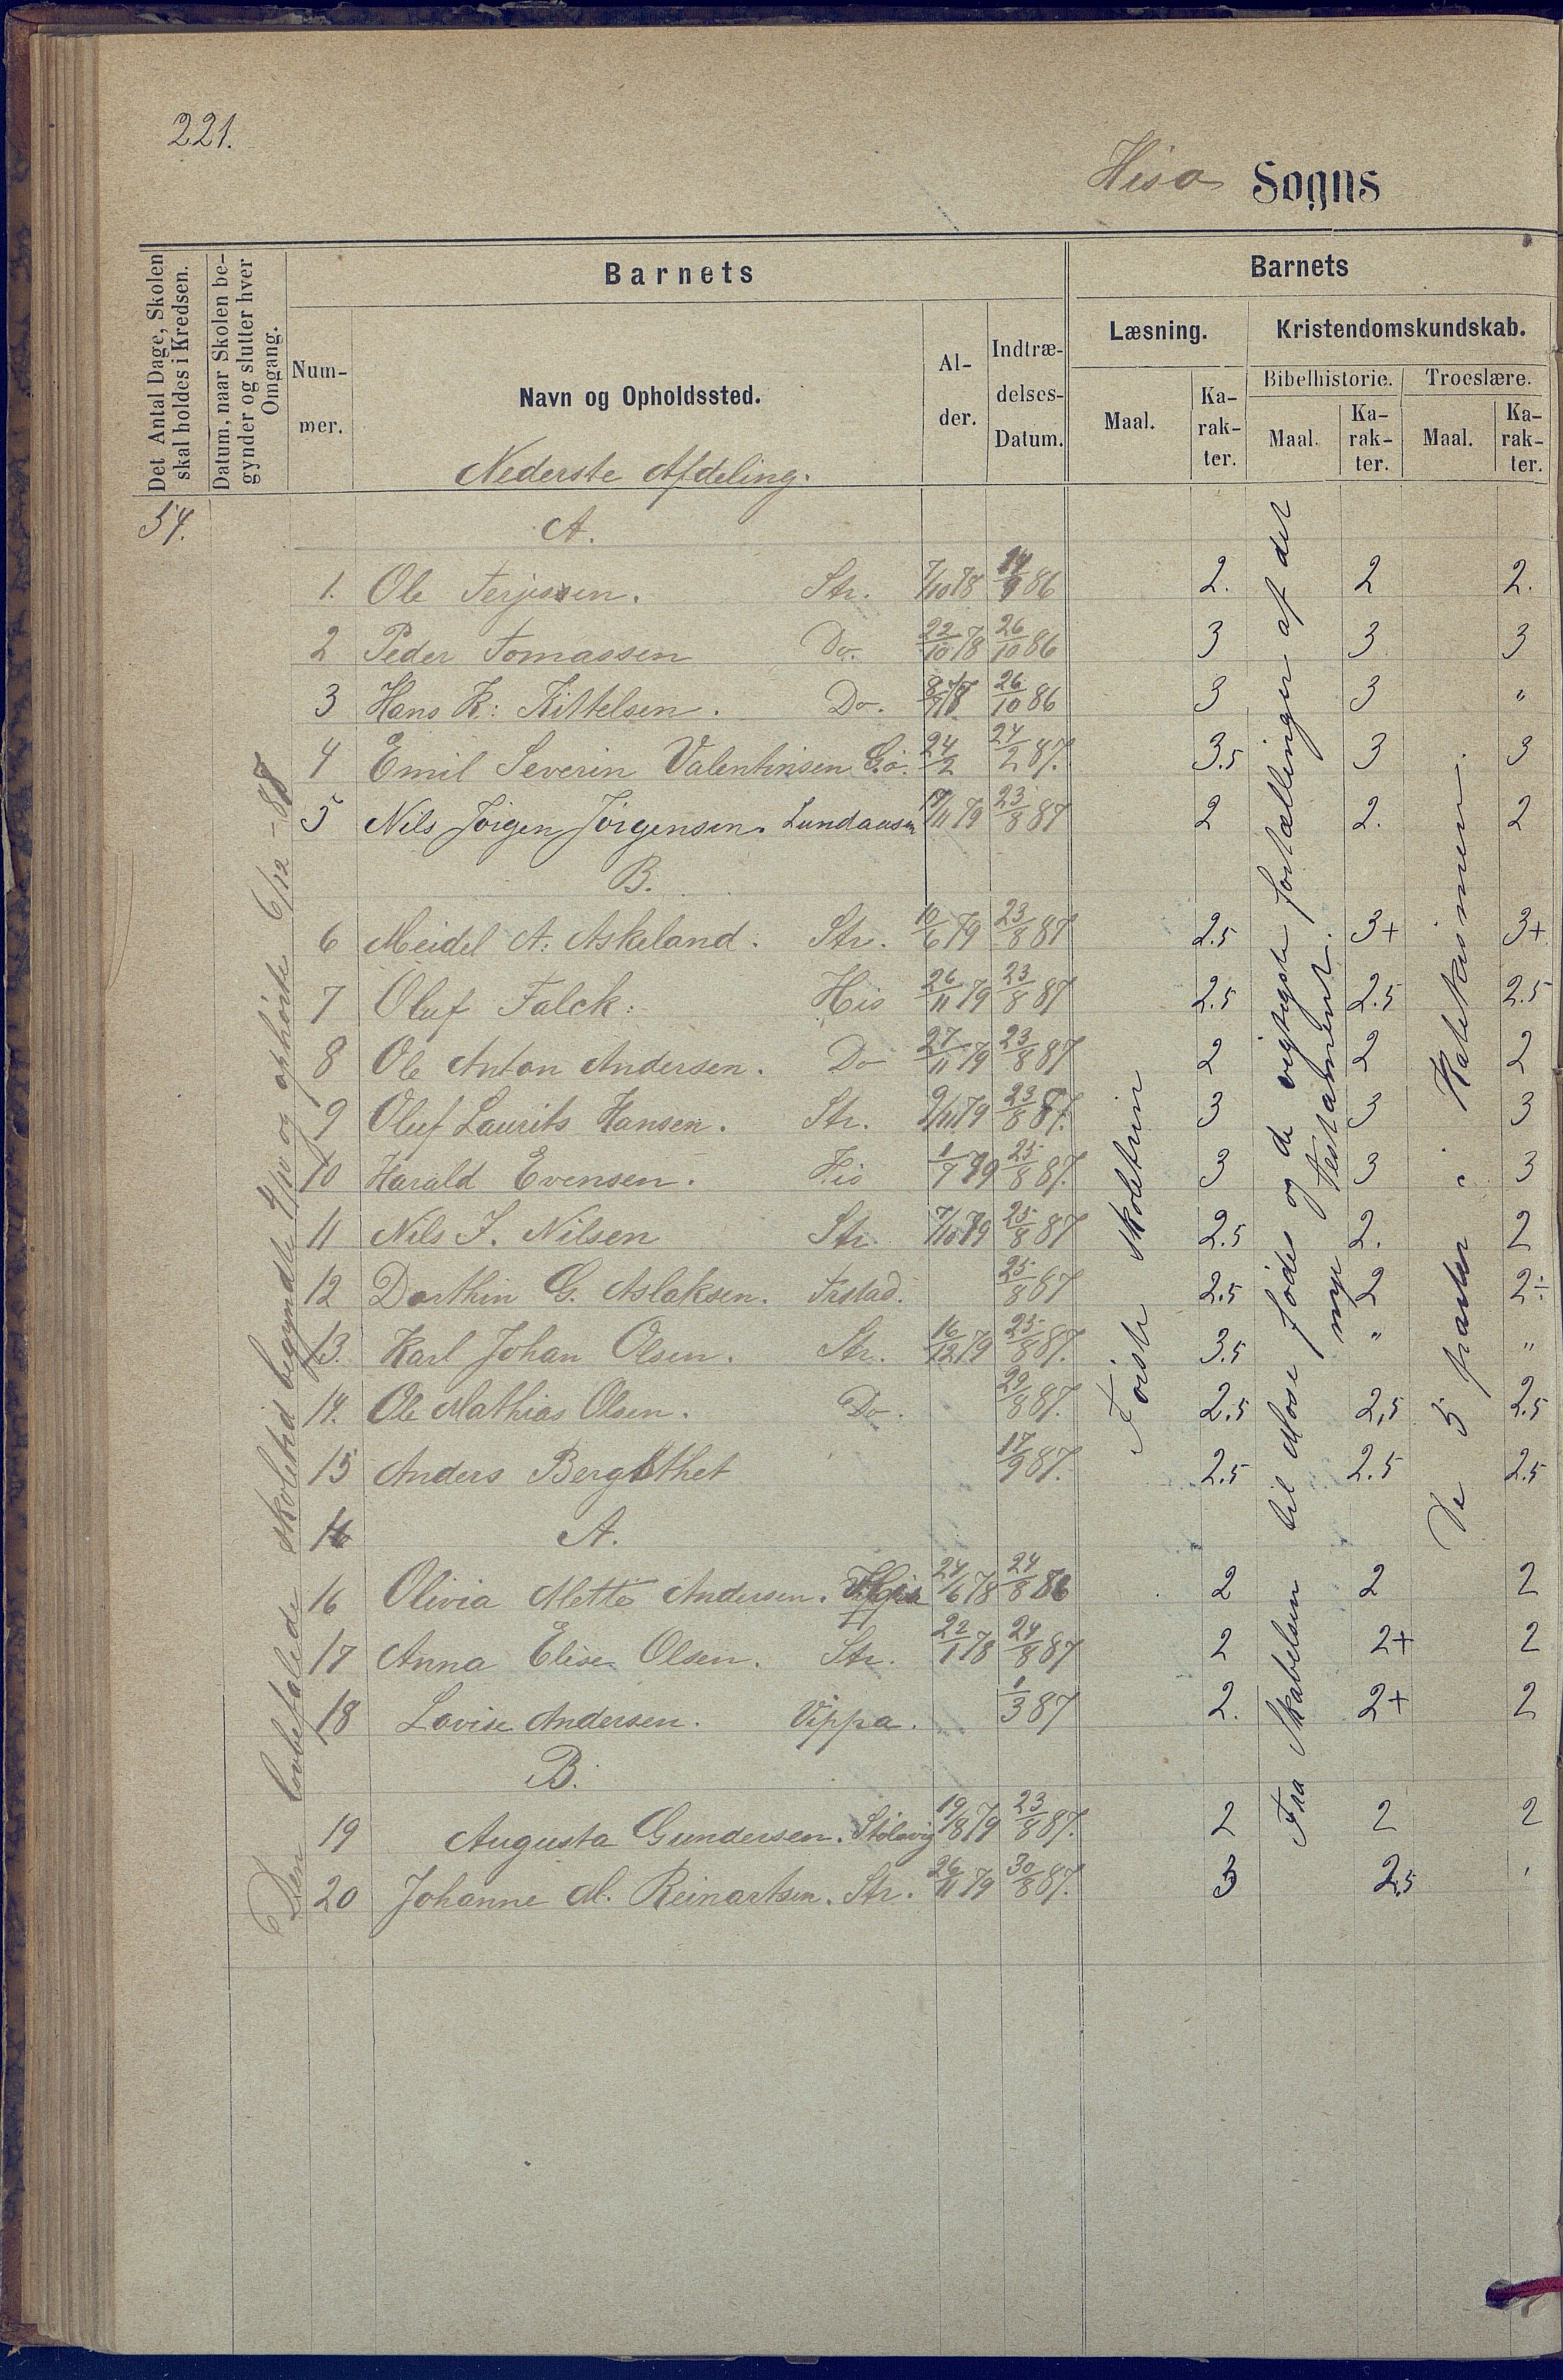 221.
Hisø Sogns
Det Antal Dage, Skolen skal holdes i Kredsen.
Datum, naar Skolen begynder og slutter hver Omgang.
Barnets
Barnets
Nummer.
Navn og Opholdssted.
Alder.
Indtrædelses-Datum.
Læsning.
Kristendomskundskab.
Bibelhistorie.
Troeslære.
Maal.
Karakter.
Maal.
Karakter.
Maal.
Karakter.
Nederste Afdeling.
54.
A.
1. Ole Terjesen. Str. 7/10 78 14/9 86 2. 2 2.
2 Peder Tomassen Do. 22/10 78 26/10 86 3 3 3
3 Hans K: Kittelsen. Do. 26/10 86 3 3 "
4 Emil Severin Valentinsen G.ø. 24/2 24/2 87. 3.5 3 3
5 Nils Jörgen Jörgensen. 23/8 87 2 2. 2
B.
6 Meidel A. Askeland. Str. 10/6 79 23/8 87 2.5 3+ 3+
7 Oluf Falck: His 26/11 79 23/8 87 2.5 2.5 2.5
8 Ole Anton Andersen. Do 27/11 79 23/8 87 2 2 2
9 Oluf Laurits Hansen. Str. 9/11 79 23/8 87. 3 3 3
10 Harald Evensen. His 1/7 79 25/8 87. 3 3 3
11 Nils J. Nilsen Str. 7/10 79 25/8 87 2.5 2. 2
12 Dorthin G. Aslaksen. 25/8 87 2.5 2 2÷
13. Karl Johan Olsen. Str. 16/12 79 25/8 87. 3.5 " "
14. Ole Mathias Olsen. Do. 29/8 87. 2.5 2,5 2.5
15 Anders Bergsthet 17/9 87. 2.5 2.5 2.5
A.
16 Olivia Mette Andersen. 24/6 78 24/8 86 2 2 2
17 Anna Elise Olsen. Str. 22/1 78 24/8 87 2 2+ 2
18 Lovise Andersen. Vippa. 1/3 87 2. 2+ 2
B.
19 Augusta Gundersen. Stølsvig 19/8 79 23/8 87. 2 2 2
20 Johanne M. Reinartsen. Str. 26/11 79 30/8 87. 3 2,5
Den lovbefalede skoletid begyndte 4/10 og ophörte 6/12 - 87
Förste Skoletrin
Fra Skabelsen til Mose födes og de vigtigste fortællinger af det nye Testament.
De 5 parter i Katekismen.